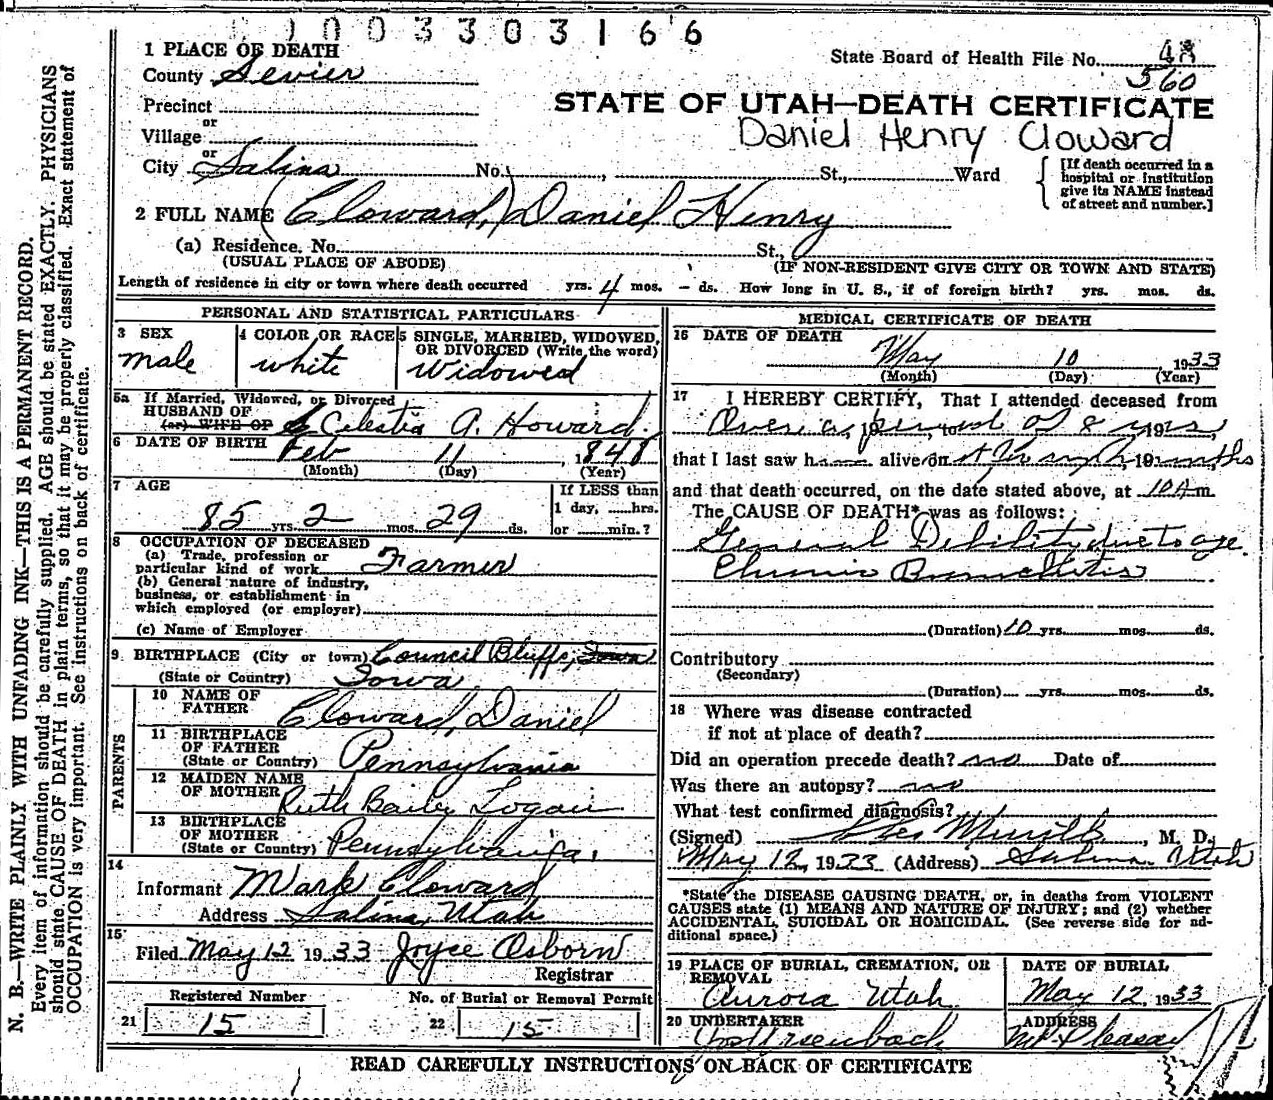 1003303166
1 PLACE OF DEATH
State Board of Health File No. 48
County Sevier
560
Precinct
STATE OF UTAH—DEATH CERTIFICATE
or
Village
Daniel Henry Cloward
or
City Salina No. , St., Ward
[If death occurred in a hospital or institution give its NAME instead of street and number.]
2 FULL NAME (Cloward,) Daniel Henry
(a) Residence. No. St.,
(USUAL PLACE OF ABODE) (IF NON-RESIDENT GIVE CITY OR TOWN AND STATE)
Length of residence in city or town where death occurred yrs. 4 mos. - ds. How long in U. S., if of foreign birth? yrs. mos. ds.
PERSONAL AND STATISTICAL PARTICULARS
3 SEX
male
4 COLOR OR RACE
white
5 SINGLE, MARRIED, WIDOWED,
OR DIVORCED (Write the word)
Widowed
5a If Married, Widowed, or Divorced
HUSBAND OF
(or) WIFE OF Celestia A. Howard.
6 DATE OF BIRTH Feb 11, 1848
(Month) (Day) (Year)
7 AGE
85 yrs. 2 mos. 29 ds.
If LESS than
1 day, hrs.
or min.?
8 OCCUPATION OF DECEASED
(a) Trade, profession or
particular kind of work Farmer
(b) General nature of industry,
business, or establishment in
which employed (or employer)
(c) Name of Employer
9 BIRTHPLACE (City or town) Council Bluffs, Iowa
(State or Country) Iowa
PARENTS
10 NAME OF
FATHER Cloward, Daniel
11 BIRTHPLACE
OF FATHER
(State or Country) Pennsylvania
12 MAIDEN NAME
OF MOTHER Ruth Bailey Logan
13 BIRTHPLACE
OF MOTHER
(State or Country) Pennsylvania.
14
Informant Mark Cloward
Address Salina, Utah
15
Filed May 12 1933 Joyce Osborn
Registrar
Registered Number
21 15
No. of Burial or Removal Permit
22 15
MEDICAL CERTIFICATE OF DEATH
16 DATE OF DEATH
May 10, 1933
(Month) (Day) (Year)
17 I HEREBY CERTIFY, That I attended deceased from
Over a period of 8 yrs, 19
that I last saw h alive on 19 months
and that death occurred, on the date stated above, at 10 A m.
The CAUSE OF DEATH* was as follows:
General Debility due to age.
Chronic Bronchitis
(Duration) 10 yrs. mos. ds.
Contributory
(Secondary)
(Duration) yrs. mos. ds.
18 Where was disease contracted
if not at place of death?
Did an operation precede death? no Date of
Was there an autopsy? no
What test confirmed diagnosis?
(Signed) Merrill, M. D.
May 12, 1933 (Address) Salina Utah
*State the DISEASE CAUSING DEATH, or, in deaths from VIOLENT
CAUSES state (1) MEANS AND NATURE OF INJURY; and (2) whether
ACCIDENTAL, SUICIDAL OR HOMICIDAL. (See reverse side for ad-
ditional space.)
19 PLACE OF BURIAL, CREMATION, OR
REMOVAL
Aurora Utah
DATE OF BURIAL
May 12, 1933
20 UNDERTAKER
ADDRESS
Mt Pleasant
READ CAREFULLY INSTRUCTIONS ON BACK OF CERTIFICATE
N. B.—WRITE PLAINLY WITH UNFADING INK—THIS IS A PERMANENT RECORD.
Every item of information should be carefully supplied. AGE should be stated EXACTLY. PHYSICIANS
should state CAUSE OF DEATH in plain terms, so that it may be properly classified. Exact statement of
OCCUPATION is very important. See instructions on back of certificate.